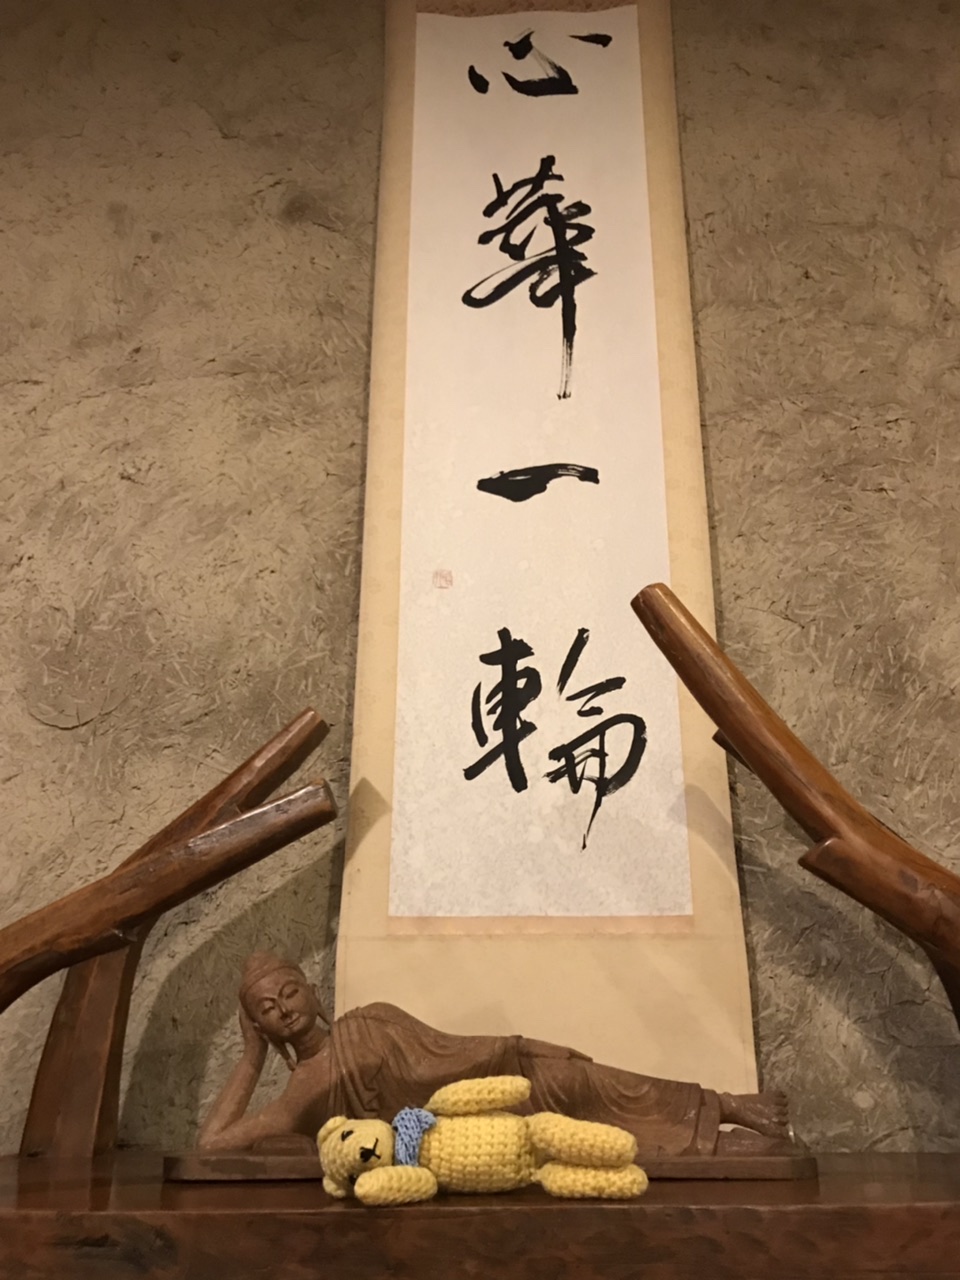 心華一輪